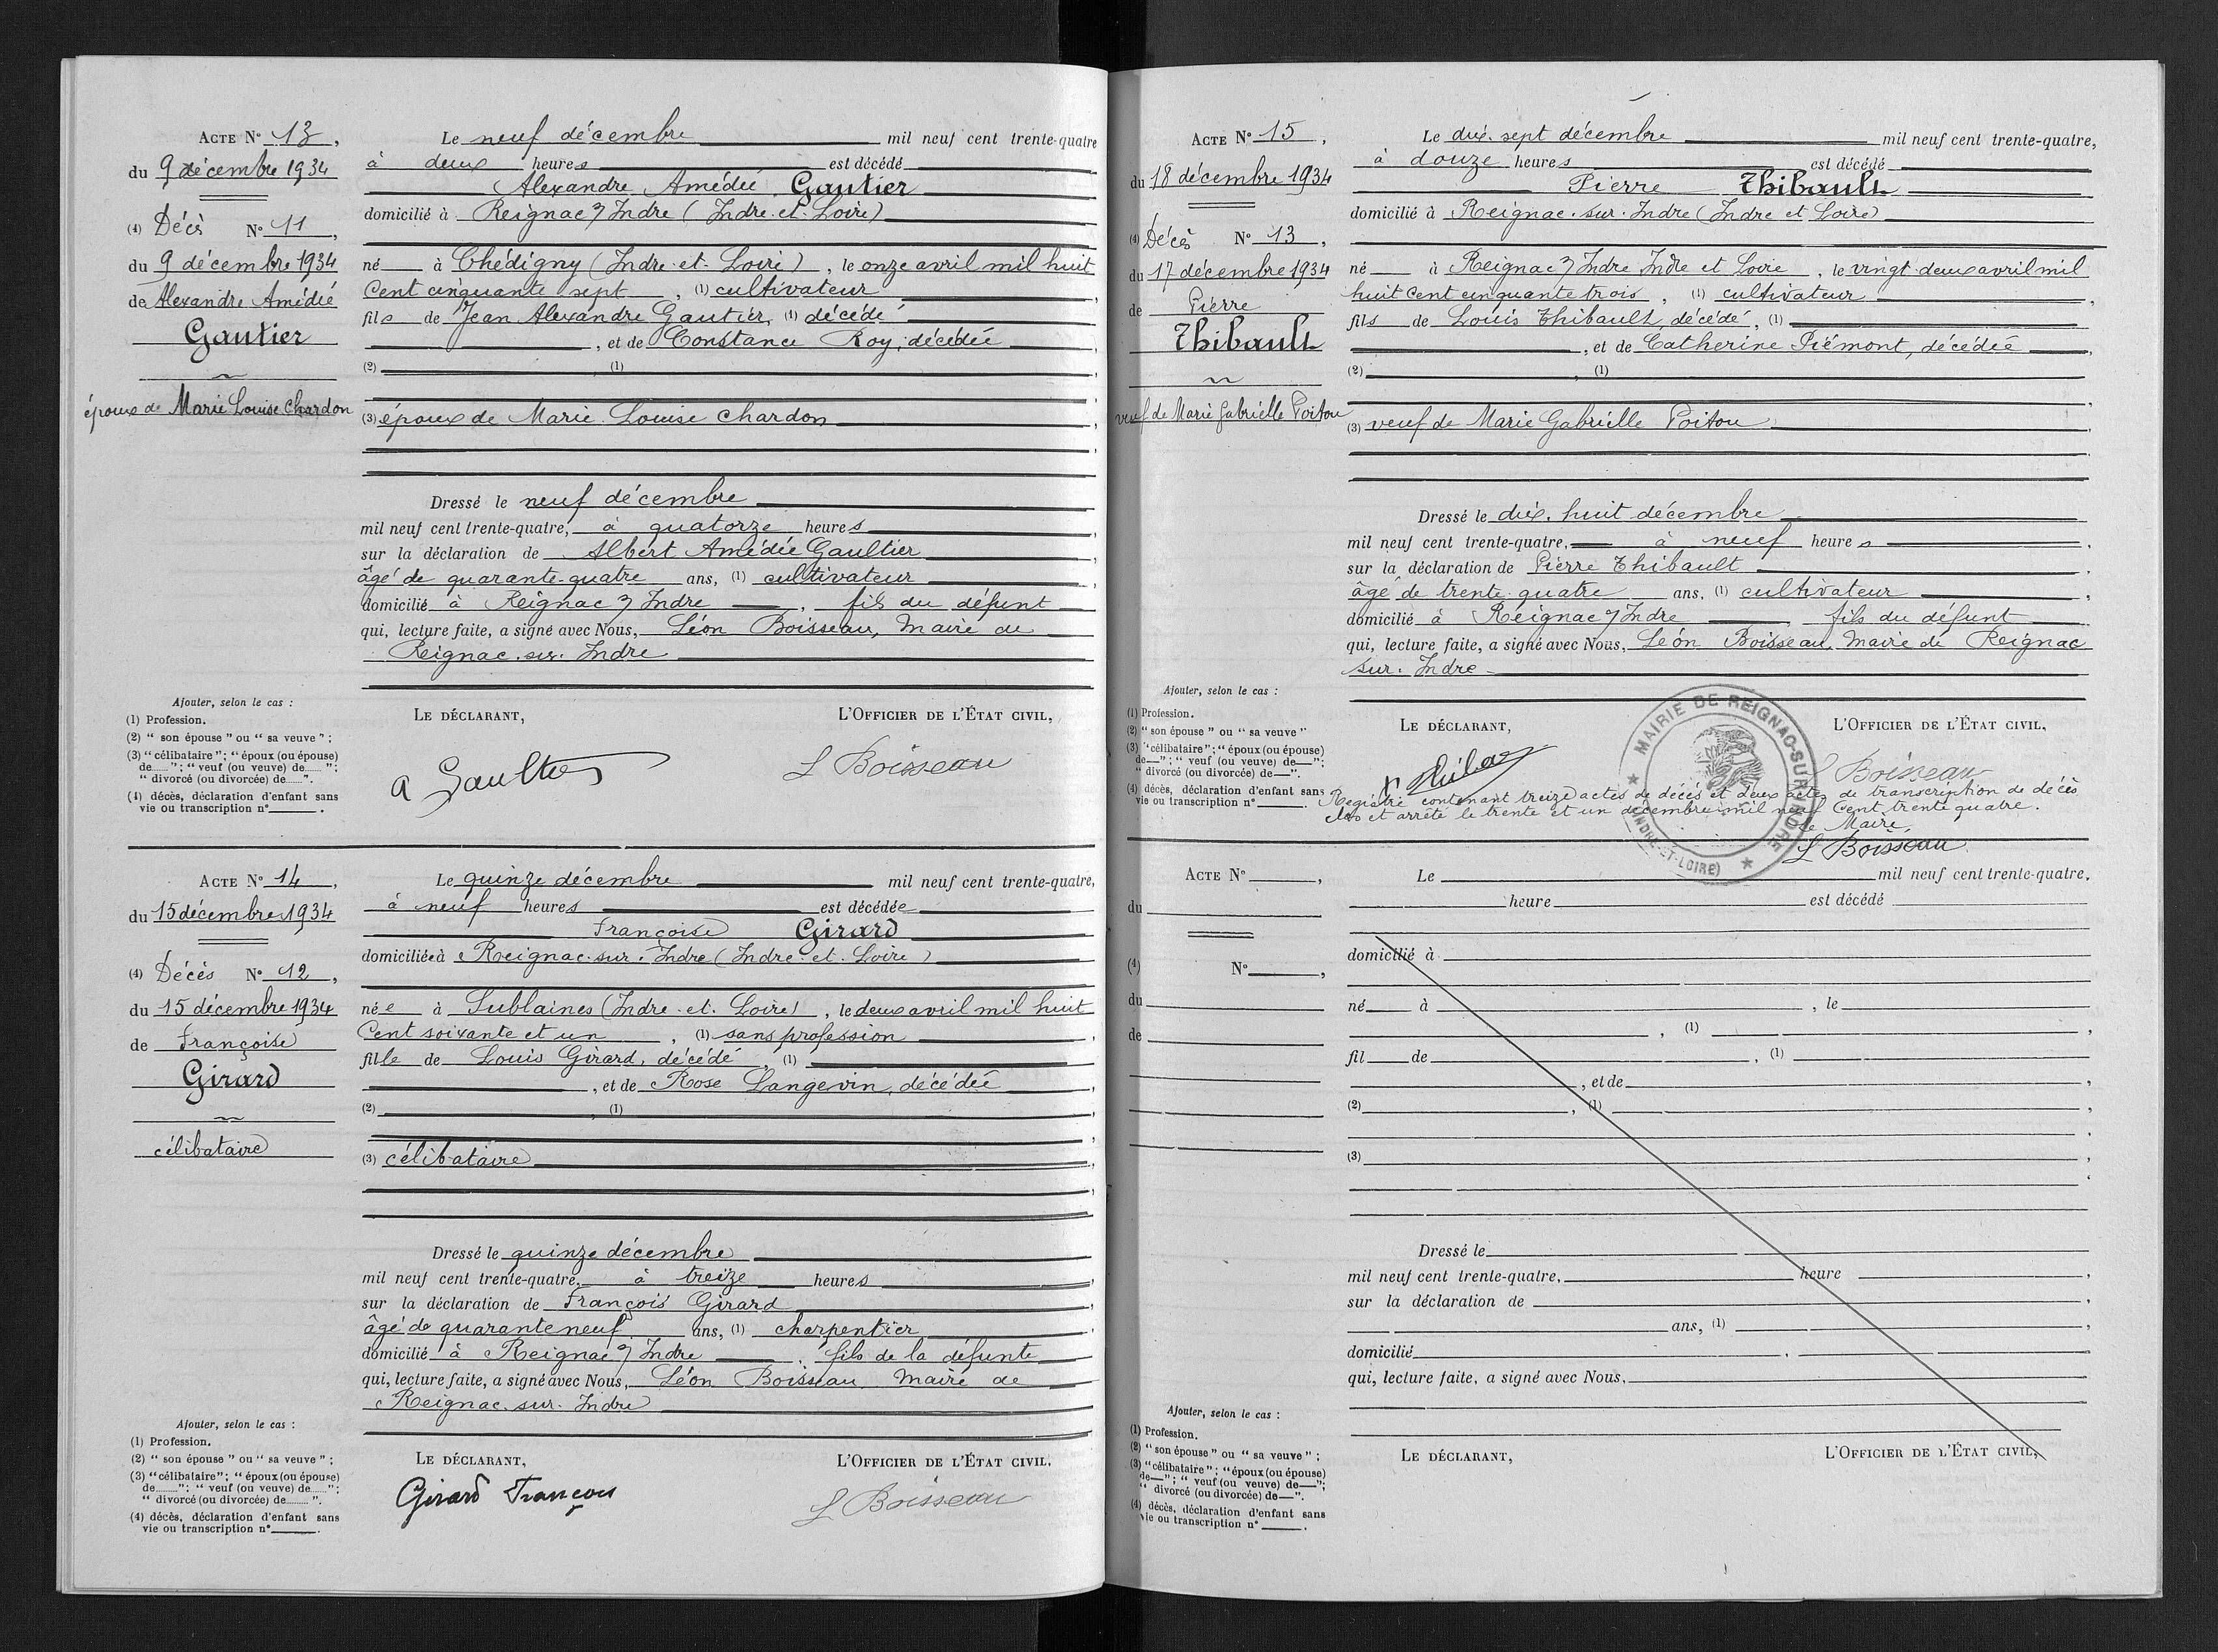 ACTE N° 13,
du 9 décembre 1934
(4) Décès N° 11,
du 9 décembre 1934
de Alexandre Amédée
Gautier
époux de Marie Louise Chardon
Le neuf décembre mil neuf cent trente-quatre
à deux heures est décédé
Alexandre Amédée Gautier
domicilié à Reignac s/ Indre (Indre-et-Loire)
né à Chédigny (Indre-et-Loire), le onze avril mil huit
cent cinquante sept, (1) cultivateur,
fils de Jean Alexandre Gautier, (1) décédé
, et de Constance Roy, décédée,
(2) (1)
(3) époux de Marie Louise Chardon,
Dressé le neuf décembre
mil neuf cent trente-quatre, à quatorze heures
sur la déclaration de Albert Amédée Gaultier
âgé de quarante-quatre ans, (1) cultivateur,
domicilié à Reignac s/ Indre, fils du défunt
qui, lecture faite, a signé avec Nous, Léon Boisseau, Maire de
Reignac-sur-Indre
Ajouter, selon le cas :
(1) Profession.
(2) " son épouse " ou " sa veuve " ;
(3) " célibataire " ; " époux (ou épouse)
de...... " ; " veuf (ou veuve) de...... " ;
" divorcé (ou divorcée) de...... ".
(4) décès, déclaration d'enfant sans
vie ou transcription n° .
LE DÉCLARANT, L'OFFICIER DE L'ÉTAT CIVIL,
A Gaultier L Boisseau
ACTE N° 14,
du 15 décembre 1934
(4) Décès N° 12,
du 15 décembre 1934
de Françoise
Girard
célibataire
Le quinze décembre mil neuf cent trente-quatre,
à neuf heures est décédée
Françoise Girard
domiciliée à Reignac-sur-Indre (Indre-et-Loire)
née à Sublaines (Indre-et-Loire), le deux avril mil huit
cent soixante et un, (1) sans profession
fille de Louis Girard, décédé, (1)
, et de Rose Langevin, décédée,
(2) , (1)
(3) célibataire
Dressé le quinze décembre
mil neuf cent trente-quatre, à treize heures
sur la déclaration de François Girard
âgé de quarante neuf ans, (1) charpentier
domicilié à Reignac s/ Indre, fils de la défunte
qui, lecture faite, a signé avec Nous, Léon Boisseau Maire de
Reignac-sur-Indre
Ajouter, selon le cas :
(1) Profession.
(2) " son épouse " ou " sa veuve " ;
(3) " célibataire " ; " époux (ou épouse)
de...... " ; " veuf (ou veuve) de...... " ;
" divorcé (ou divorcée) de...... ".
(4) décès, déclaration d'enfant sans
vie ou transcription n° .
LE DÉCLARANT, L'OFFICIER DE L'ÉTAT CIVIL,
Girard François L Boisseau
ACTE N° 15,
du 18 décembre 1934
(4) Décès N° 13,
du 17 décembre 1934
de Pierre
Thibault
veuf de Marie Gabrielle Poitou
Le dix-sept décembre mil neuf cent trente-quatre,
à douze heures est décédé
Pierre Thibault
domicilié à Reignac-sur-Indre (Indre et Loire)
né à Reignac s/ Indre Indre et Loire, le vingt-deux avril mil
huit cent cinquante trois, (1) cultivateur,
fils de Louis Thibault, décédé, (1)
, et de Catherine Piémont, décédée,
(2) , (1)
(3) veuf de Marie Gabrielle Poitou,
Dressé le dix-huit décembre
mil neuf cent trente-quatre, à neuf heures,
sur la déclaration de Pierre Thibault,
âgé de trente quatre ans, (1) cultivateur,
domicilié à Reignac s/ Indre, fils du défunt
qui, lecture faite, a signé avec Nous, Léon Boisseau, Maire de Reignac
sur-Indre
Ajouter, selon le cas :
(1) Profession.
(2) " son épouse " ou " sa veuve "
(3) " célibataire " ; " époux (ou épouse)
de— " ; " veuf (ou veuve) de— " ;
" divorcé (ou divorcée) de— ".
(4) décès, déclaration d'enfant sans
vie ou transcription n° .
LE DÉCLARANT, L'OFFICIER DE L'ÉTAT CIVIL,
MAIRIE DE REIGNAC-SUR-INDRE
(INDRE-ET-LOIRE)
L Boisseau
Registre contenant treize actes de décès et deux actes de transcription de décès
clos et arrêté le trente et un décembre mil neuf cent trente quatre.
Le Maire,
L Boisseau
ACTE N° ,
du
(4) N° ,
du
de
Le mil neuf cent trente-quatre,
heure est décédé
domicilié à
né à , le
, (1) ,
fil de , (1)
, et de ,
(2) , (1) ,
(3) ,
Dressé le
mil neuf cent trente-quatre, heure ,
sur la déclaration de ,
ans, (1) ,
domicilié ,
qui, lecture faite, a signé avec Nous,
Ajouter, selon le cas :
(1) Profession.
(2) " son épouse " ou " sa veuve " ;
(3) " célibataire " ; " époux (ou épouse)
de— " ; " veuf (ou veuve) de— " ;
" divorcé (ou divorcée) de— ".
(4) décès, déclaration d'enfant sans
vie ou transcription n° .
LE DÉCLARANT, L'OFFICIER DE L'ÉTAT CIVIL,